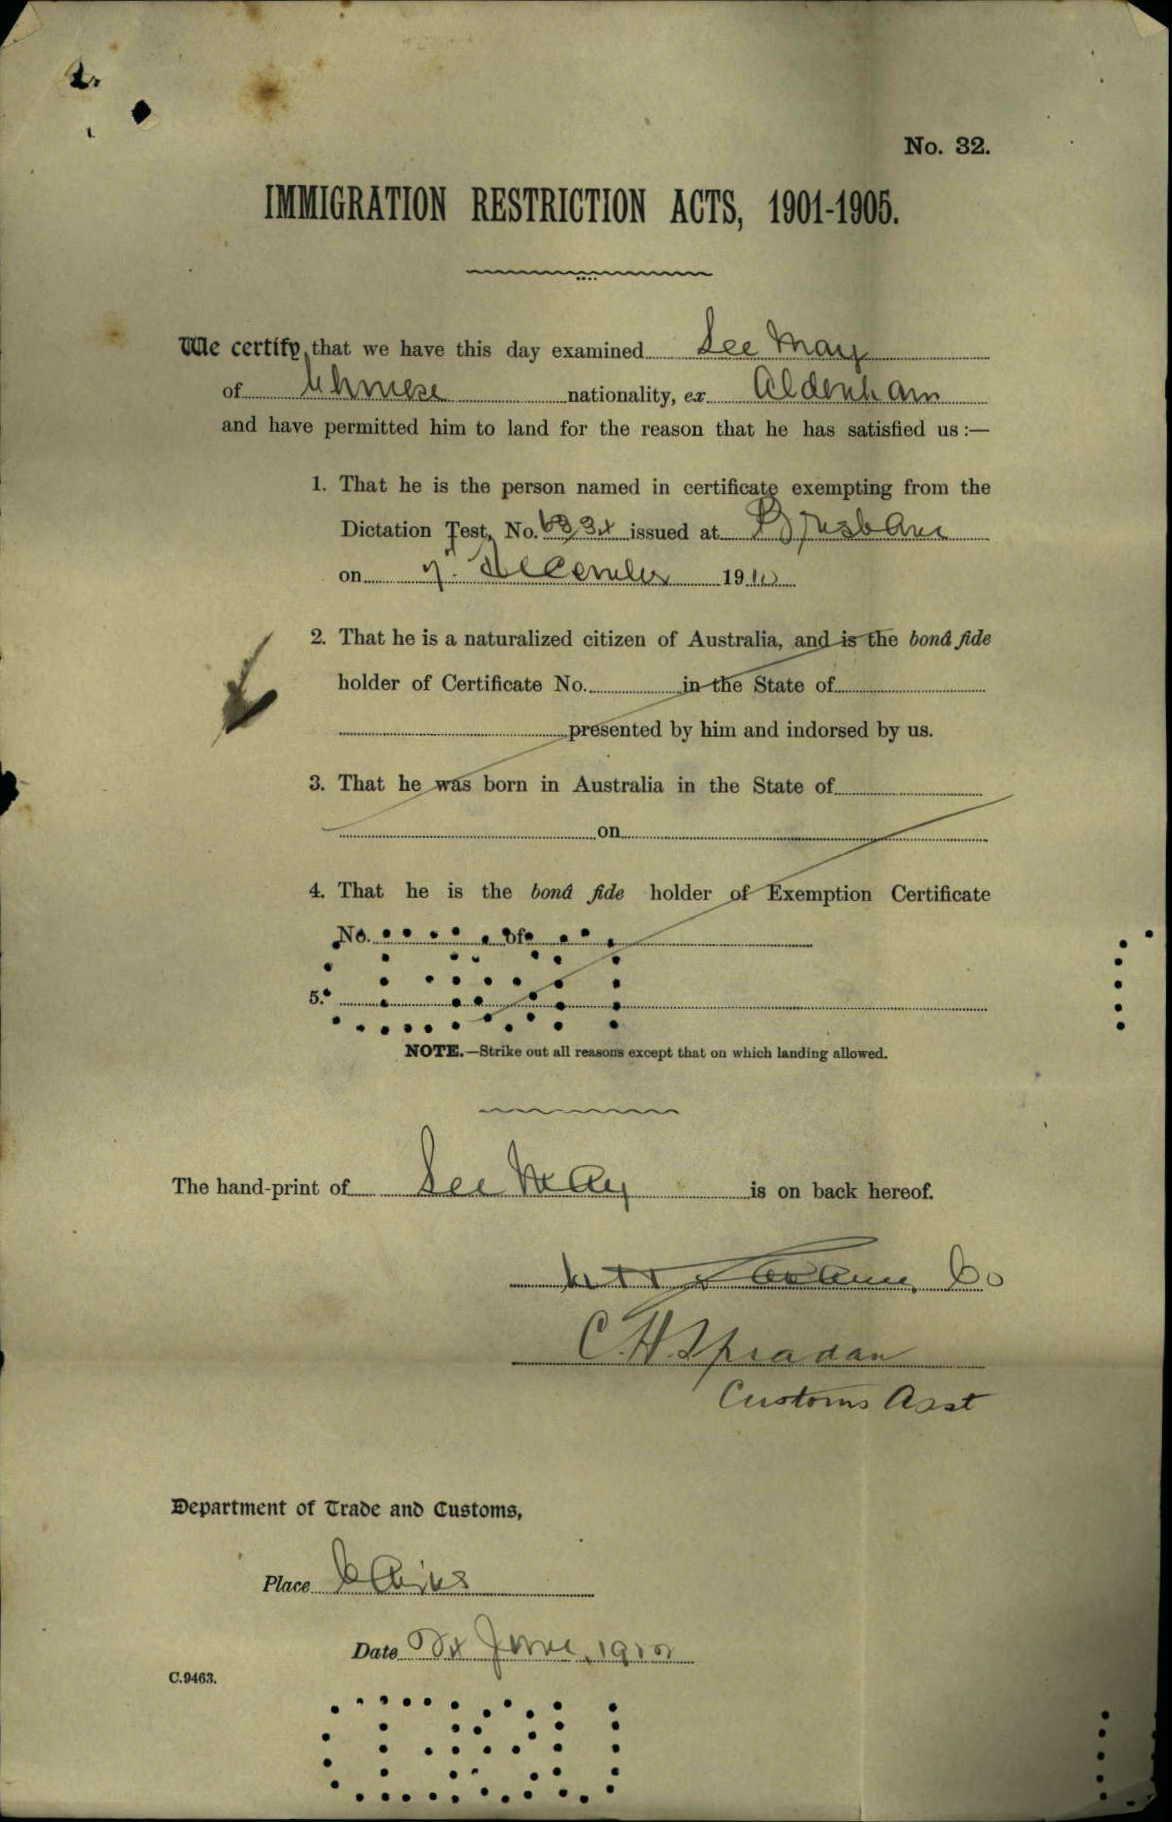 No. 32.
IMMIGRATION RESTRICTION ACTS, 1901-1905.
We certify, that we have this day examined See May
of Chinese nationality, ex Aldenham
and have permitted him to land for the reason that he has satisfied us :—
1. That he is the person named in certificate exempting from the
Dictation Test, No. issued at Brisbane
on 7. December 1910
2. That he is a naturalized citizen of Australia, and is the bonâ fide
holder of Certificate No. in the State of
presented by him and indorsed by us.
3. That he was born in Australia in the State of
on
4. That he is the bonâ fide holder of Exemption Certificate
No. of
5.
NOTE.—Strike out all reasons except that on which landing allowed.
The hand-print of See May is on back hereof.
Co
C. H. Spradan
Customs Asst
Department of Trade and Customs,
Place Cairns
Date June, 1912
C.9463.